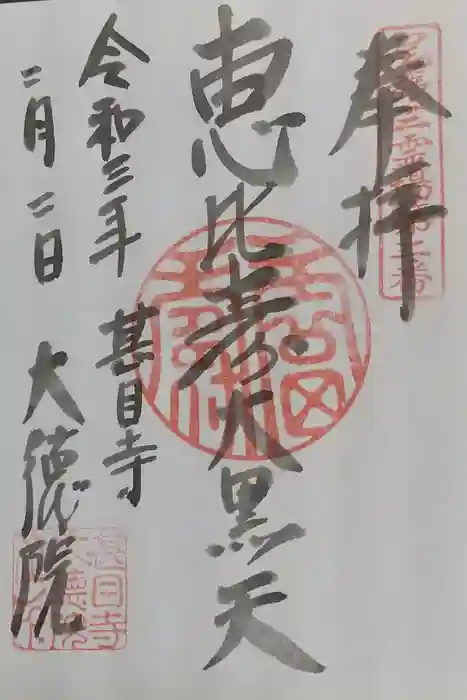 奉拝
恵比寿大黒天
令和三年 甚目寺
二月二日 大徳院